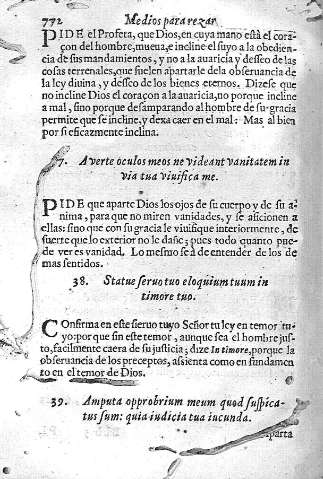 772 Medios para rezar
PIDE el Profera, que Dios, en cuya mano está el cora-
çon del hombre, mueua, e incline el suyo a la obedien-
cia de sus mandamientos, y no a la auaricia y desseo de las
cosas terrenales, que suelen apartarle de la obseruancia de
la ley diuina, y desseo de los bienes eternos. Dizese que
no incline Dios el coraçon a la auaricia, no porque incline
a mal, sino porque desamparando al hombre de su gracia
permite que se incline, y dexa caer en el mal: Mas al bien
por si eficazmente inclina.
7. Auerte oculos meos ne videant vanitatem in
via tua viuifica me.
PIDE que aparte Dios los ojos de su cuerpo y de su a-
nima, para que no miren vanidades, y se aficionen a
ellas: sino que con su gracia le viuifique interiormente, de
suerte que lo exterior no le dañe; pues todo quanto pue-
de ver es vanidad. Lo mesmo se à de entender de los de
mas sentidos.
38. Statue seruo tuo eloquium tuum in
timore tuo.
COnfirma en este sieruo tuyo Señor tu ley en temor tu-
yo: por que sin este temor, aunque sea el hombre jus-
to, facilmente caera de su justicia; dize In timore, porque la
obseruancia de los preceptos, assienta como en fundamen
to en el temor de Dios.
39. Amputa opprobrium meum quod suspica-
tus sum: quia iudicia tua iucunda.
Aparta